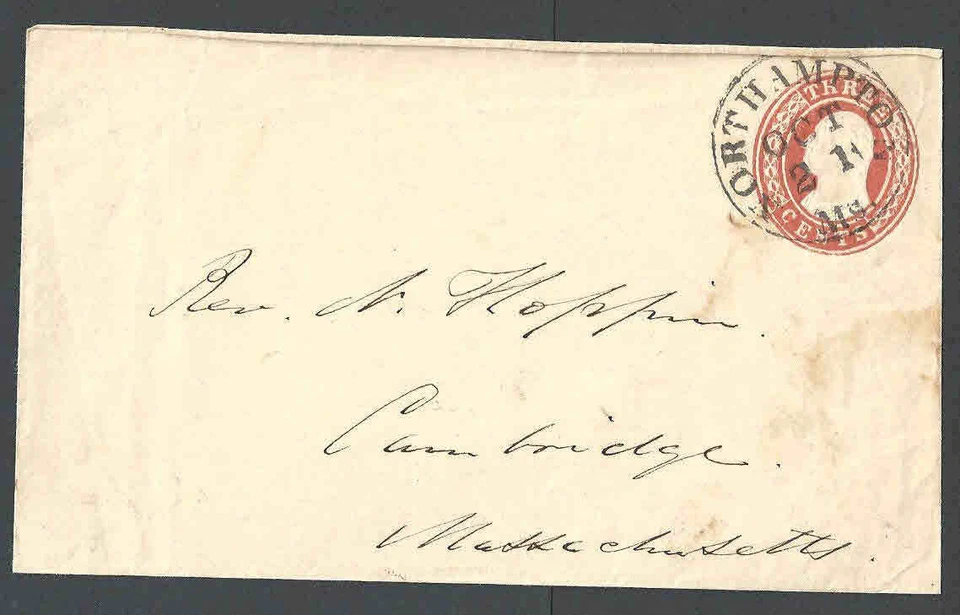 NORTHAMPTON
OCT
Ms.
THREE
CENTS
Rev. N. Hoppin.
Cambridge.
Massachusetts.